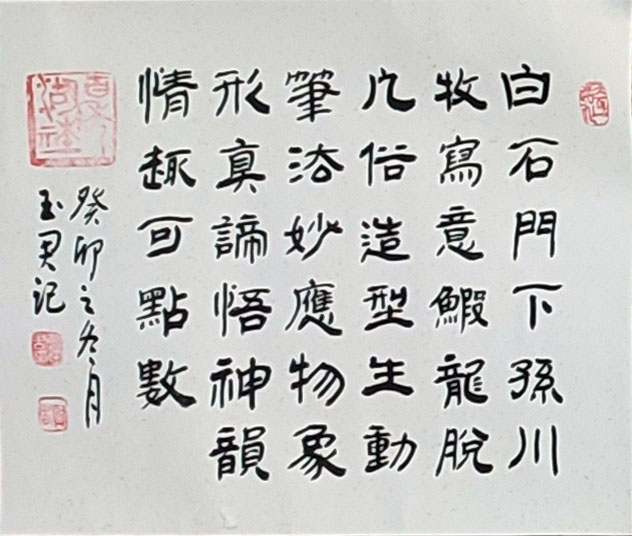 白石門下孫川
牧寫意鰕龍脫
凡俗造型生動
筆法妙應物象
形真諦悟神韻
情趣可點數
癸卯之冬月
玉君記